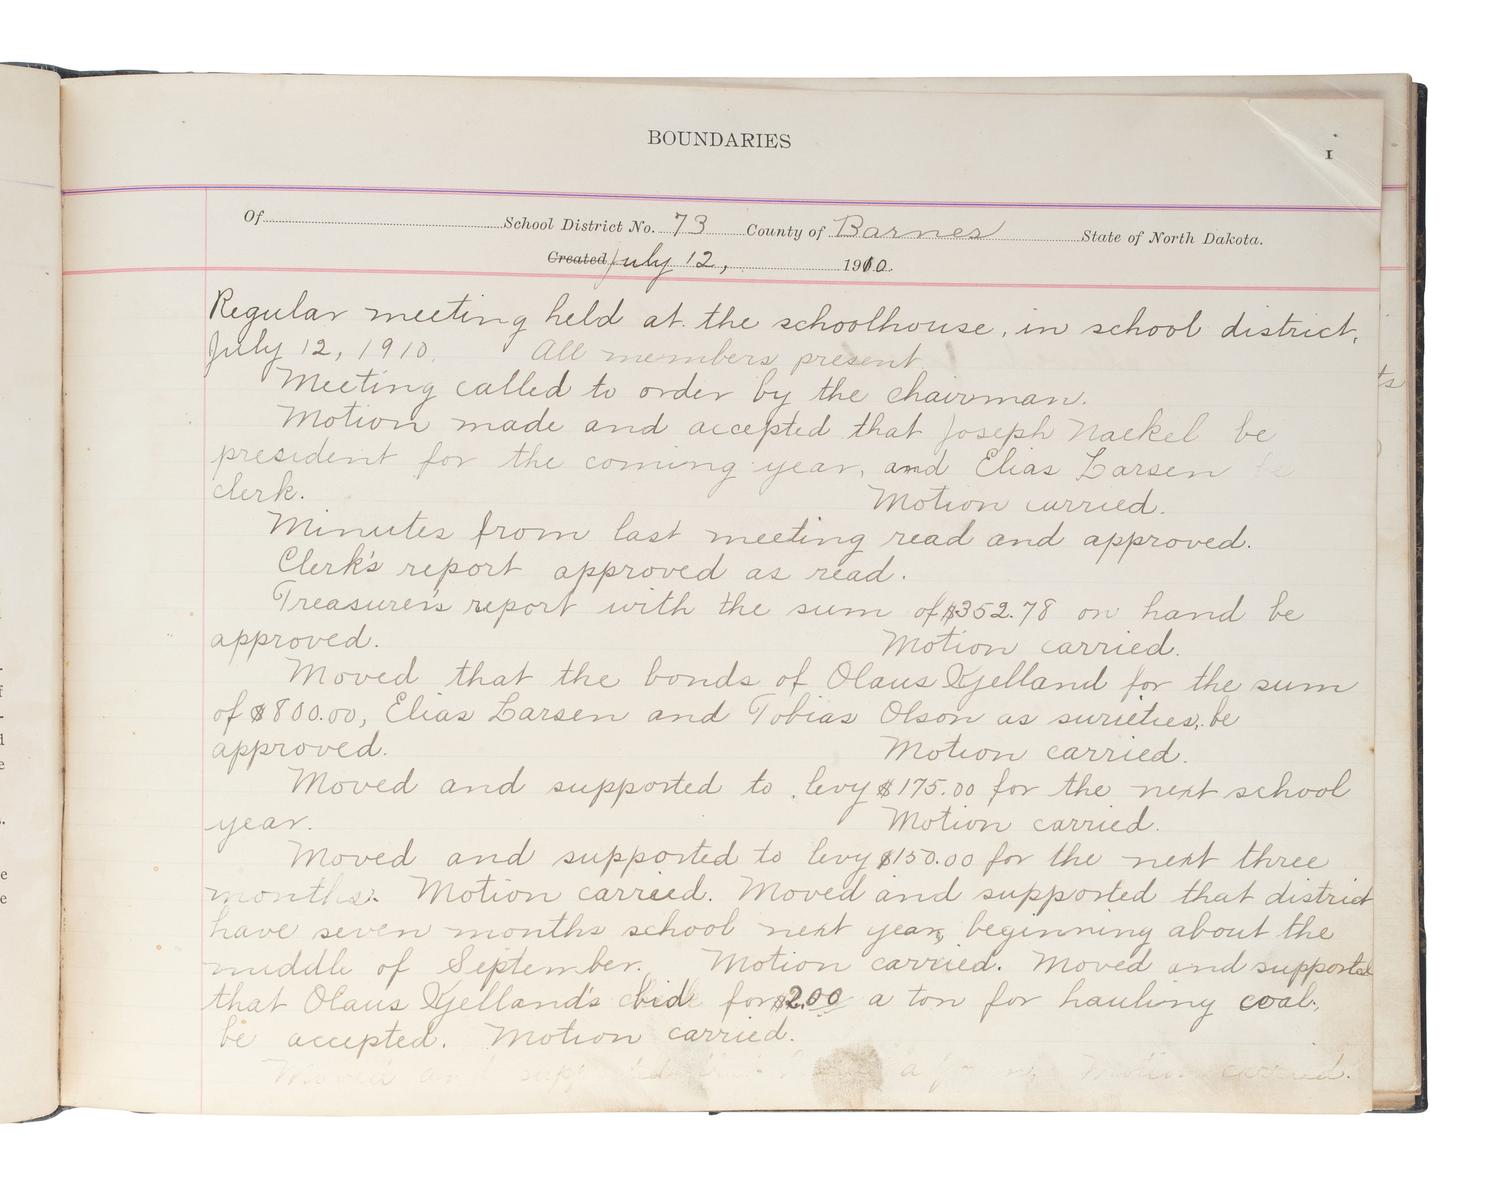 BOUNDARIES
1
Of School District No. 73 County of Barnes State of North Dakota.
Created July 12, 1910.
Regular meeting held at the schoolhouse, in school district,
July 12, 1910. All members present
Meeting called to order by the chairman.
Motion made and accepted that Joseph Naekel be
president for the coming year, and Elias Larsen be
clerk. Motion carried.
Minutes from last meeting read and approved.
Clerk's report approved as read.
Treasurer's report with the sum of $352.78 on hand be
approved. Motion carried.
Moved that the bonds of Olaus Kjelland for the sum
of $800.00, Elias Larsen and Tobias Olson as surieties, be
approved. Motion carried.
Moved and supported to levy $175.00 for the next school
year. Motion carried.
Moved and supported to levy $150.00 for the next three
months. Motion carried. Moved and supported that district
have seven months school next year, beginning about the
middle of September. Motion carried. Moved and supported
that Olaus Kjelland's bid for $2.00 a ton for hauling coal,
be accepted. Motion carried.
Moved and supported carried.